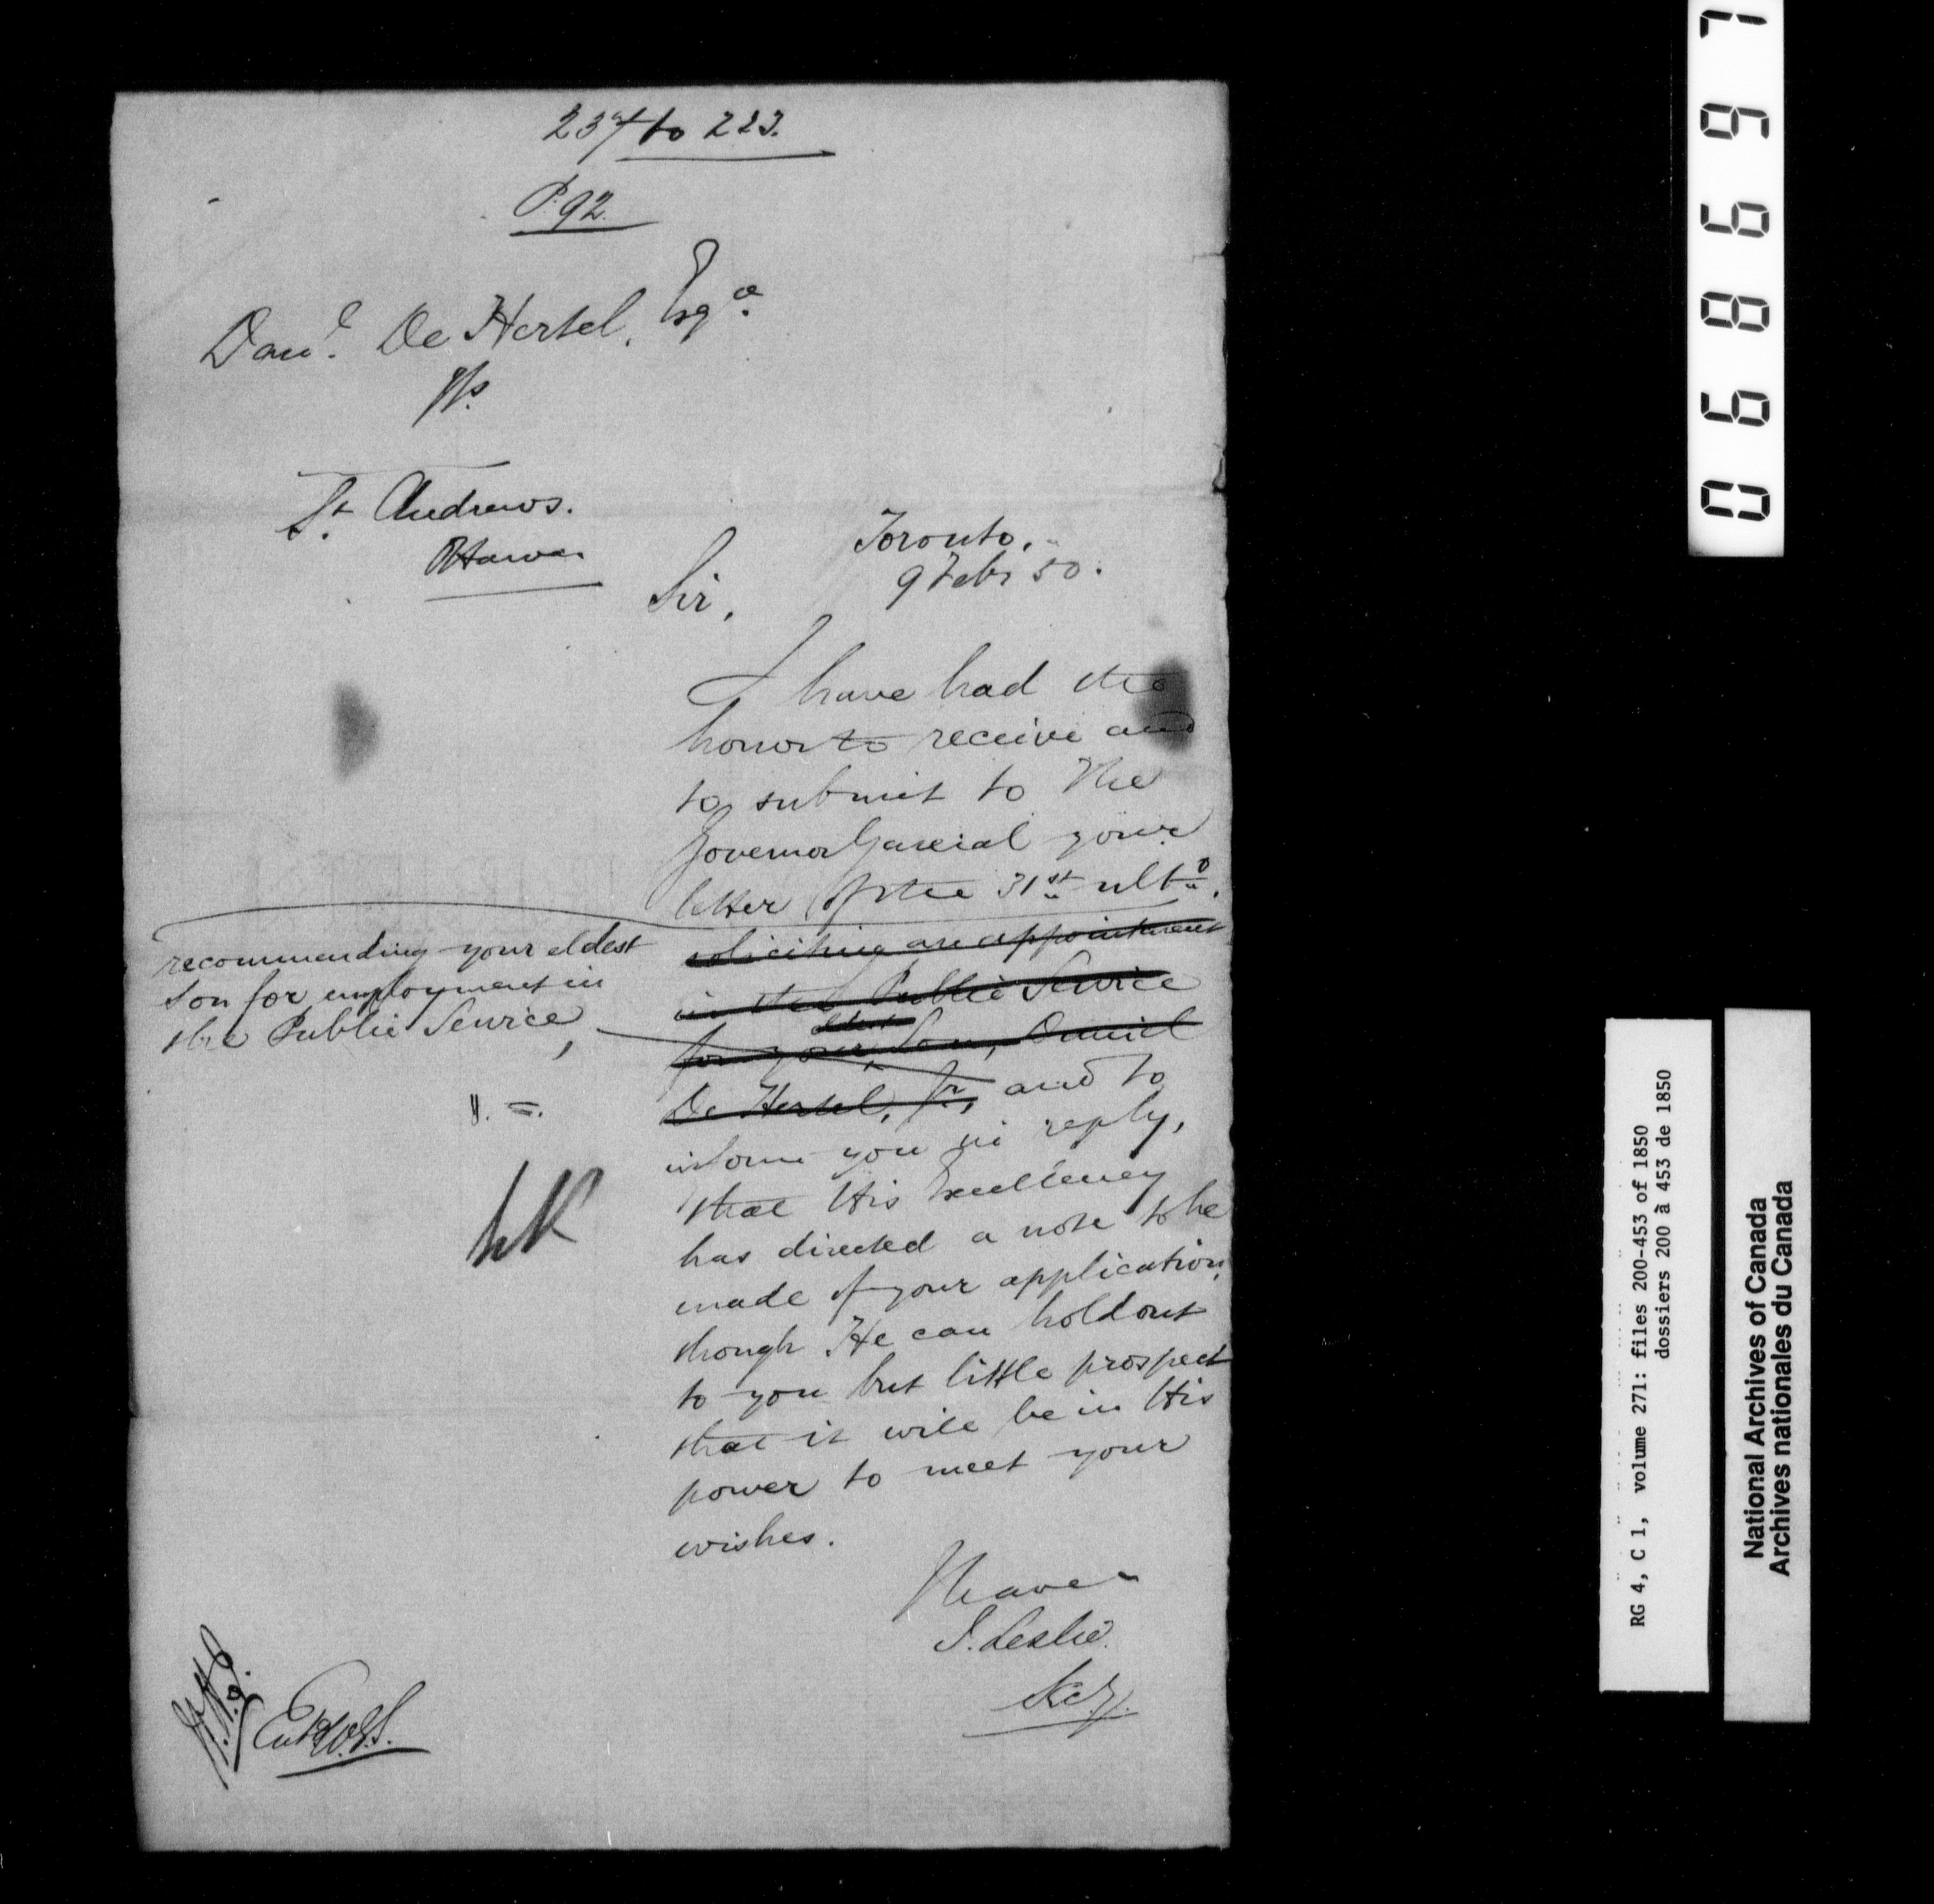 to 223.
P. 92.
Danl. De Hertel, Esqe.
St. Andrews.
Ottawa
Toronto,
9 Feby 50.
Sir,
I have had the
honor to receive and
to submit to The
Governor General your
letter of the 31st ulto.
soliciting an appointment
in the Public Service
for your eldest Son, Daniel
De Hertel, Jr, and to
recommending your eldest
son for employment in
the Public Service,
inform you in reply,
that His Excellency
has directed a note to be
made of your application,
though He can hold out
to you but little prospect
that it will be in His
power to meet your
wishes.
I have
J. Leslie.
Secy.
069897
RG 4, C 1, volume 271: files 200-453 of 1850
dossiers 200 à 453 de 1850
National Archives of Canada
Archives nationales du Canada